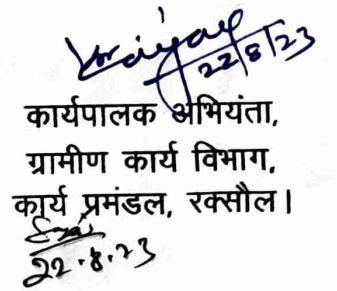 22/8/23
कार्यपालक अभियंता,
ग्रामीण कार्य विभाग,
कार्य प्रमंडल, रक्सौल।
22.8.23